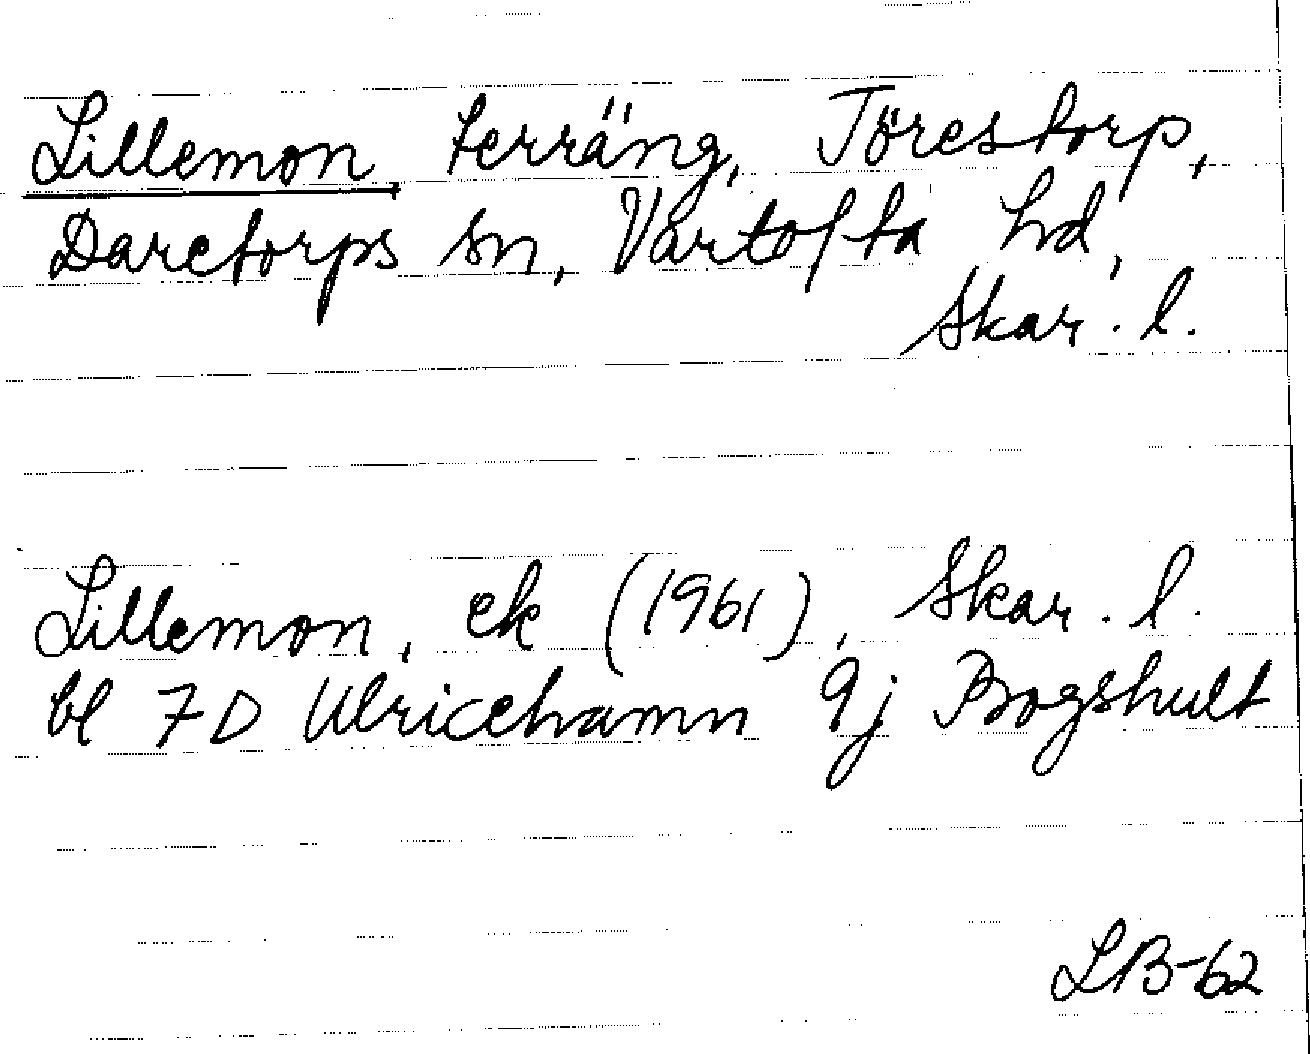 Lillemon, terräng, Törestorp,
Daretorps sn, Vartofta hd,
Skar. l.
Lillemon, ek (1961), Skar. l.
bl 7D Ulricehamn 9j Bogshult
LB-62